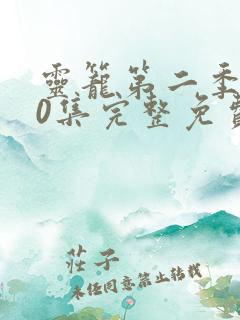 靈籠第二季
0集完整免費
莊子
未任何意禁止转载